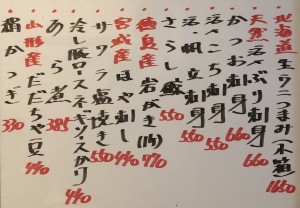 北海道産 生ウニつまみ(木箱) 1650
天然 活〆ぶり刺身 660
かつお刺身 660
活〆こち刺身 550
活帆立刺身 550
さらし鯨 550
徳島産 岩がき(1ヶ) 770
宮城産 ほや刺し 440
サワラ塩焼き 550
冷し豚ロースネギソースがけ 440
あら煮 385
山形産 だだちゃ豆 440
絹かつぎ 330